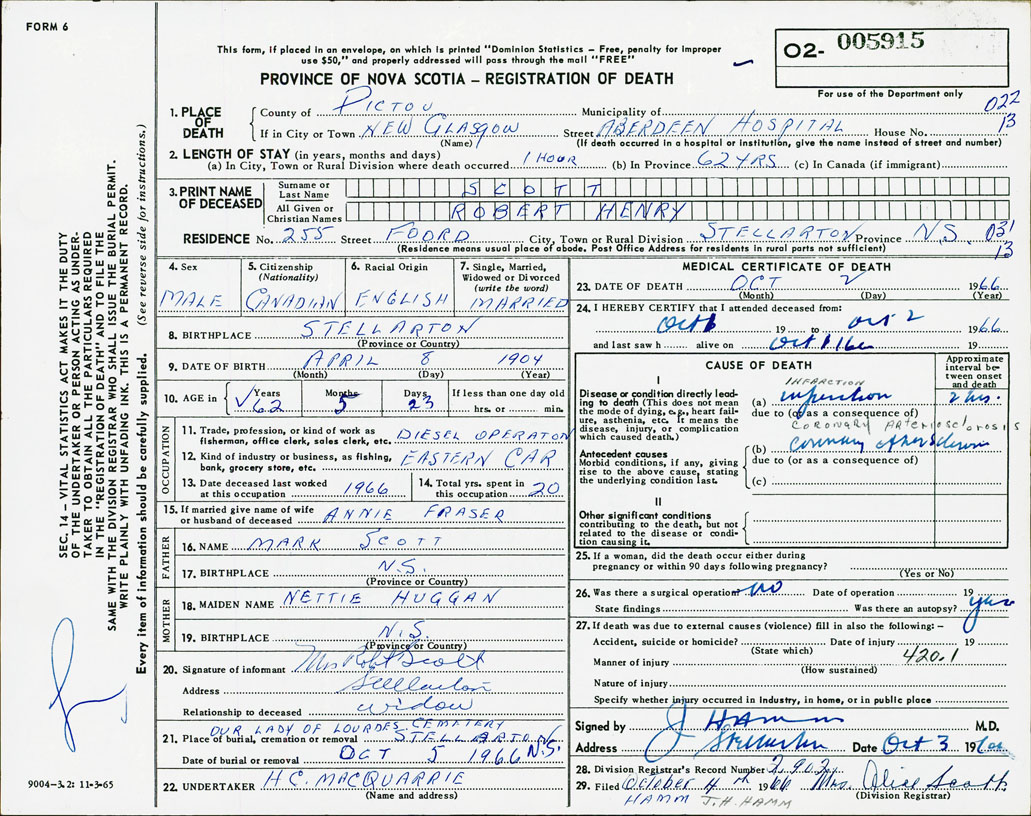 FORM 6
This form, if placed in an envelope, on which is printed "Dominion Statistics – Free, penalty for improper
use $50," and properly addressed will pass through the mail "FREE"
PROVINCE OF NOVA SCOTIA – REGISTRATION OF DEATH
O2- 005915
For use of the Department only
022
13
1. PLACE OF DEATH
County of PICTOU Municipality of
If in City or Town NEW GLASGOW Street ABERDEEN HOSPITAL House No.
(Name) (If death occurred in a hospital or institution, give the name instead of street and number)
2. LENGTH OF STAY (in years, months and days)
(a) In City, Town or Rural Division where death occurred 1 HOUR (b) In Province 62 YRS (c) In Canada (if immigrant)
3. PRINT NAME OF DECEASED
Surname or Last Name SCOTT
All Given or Christian Names ROBERT HENRY
RESIDENCE No. 255 Street FOORD City, Town or Rural Division STELLARTON Province N.S. 031
13
(Residence means usual place of abode. Post Office Address for residents in rural parts not sufficient)
4. Sex
MALE
5. Citizenship
(Nationality)
CANADIAN
6. Racial Origin
ENGLISH
7. Single, Married,
Widowed or Divorced
(write the word)
MARRIED
8. BIRTHPLACE STELLARTON
(Province or Country)
9. DATE OF BIRTH APRIL 8 1904
(Month) (Day) (Year)
10. AGE in Years 62 Months 5 Days 23 If less than one day old
hrs. or min.
OCCUPATION
11. Trade, profession, or kind of work as
fisherman, office clerk, sales clerk, etc. DIESEL OPERATOR
12. Kind of industry or business, as fishing,
bank, grocery store, etc. EASTERN CAR
13. Date deceased last worked
at this occupation 1966
14. Total yrs. spent in
this occupation 20
15. If married give name of wife
or husband of deceased ANNIE FRASER
FATHER
16. NAME MARK SCOTT
17. BIRTHPLACE N.S.
(Province or Country)
MOTHER
18. MAIDEN NAME NETTIE HUGGAN
19. BIRTHPLACE N.S.
(Province or Country)
20. Signature of informant Mrs Robt Scott
Address Stellarton
Relationship to deceased widow
OUR LADY OF LOURDES CEMETERY
21. Place of burial, cremation or removal STELLARTON N.S.
Date of burial or removal OCT 5 1966
22. UNDERTAKER H.C. MACQUARRIE
(Name and address)
MEDICAL CERTIFICATE OF DEATH
23. DATE OF DEATH OCT 2 1966
(Month) (Day) (Year)
24. I HEREBY CERTIFY that I attended deceased from:
Oct 19 to Oct 2 1966
and last saw h alive on Oct 19
CAUSE OF DEATH
Approximate
interval between
onset
and death
I
Disease or condition directly leading
to death (This does not mean
the mode of dying, e.g., heart failure,
asthenia, etc. It means the
disease, injury, or complication
which caused death.)
INFARCTION
(a) infarction 2 hrs.
due to (or as a consequence of)
CORONARY ARTERIOSCLEROSIS
Antecedent causes
Morbid conditions, if any, giving
rise to the above cause, stating
the underlying condition last.
(b) coronary
due to (or as a consequence of)
(c)
II
Other significant conditions
contributing to the death, but not
related to the disease or condition
causing it.
25. If a woman, did the death occur either during
pregnancy or within 90 days following pregnancy?
(Yes or No)
26. Was there a surgical operation no Date of operation 19
State findings Was there an autopsy?
27. If death was due to external causes (violence) fill in also the following:–
Accident, suicide or homicide? Date of injury 19
(State which)
420.1
Manner of injury
(How sustained)
Nature of injury
Specify whether injury occurred in industry, in home, or in public place
Signed by J Hamm M.D.
Address Stellarton Date Oct 3 1966
28. Division Registrar's Record Number
29. Filed October 4th 1966 Mrs. Alice Scott
(Division Registrar)
HAMM J.H. HAMM
SEC. 14 – VITAL STATISTICS ACT MAKES IT THE DUTY
OF THE UNDERTAKER OR PERSON ACTING AS UNDERTAKER
TO OBTAIN ALL THE PARTICULARS REQUIRED
IN THE "REGISTRATION OF DEATH" AND TO FILE THE
SAME WITH THE DIVISION REGISTRAR WHO SHALL ISSUE THE BURIAL PERMIT.
WRITE PLAINLY WITH UNFADING INK. THIS IS A PERMANENT RECORD.
Every item of information should be carefully supplied. (See reverse side for instructions.)
9004-3.2: 11-3-65